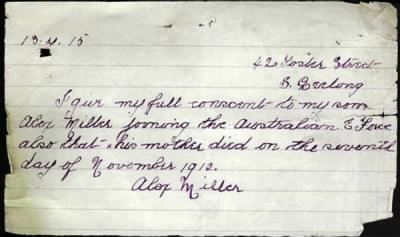 13.4.15
42 Foster Street
S. Geelong
I give my full conscent to my son
Alex Miller joining the Australian E Force
also that his mother died on the seventh
day of November 1912.
Alex Miller